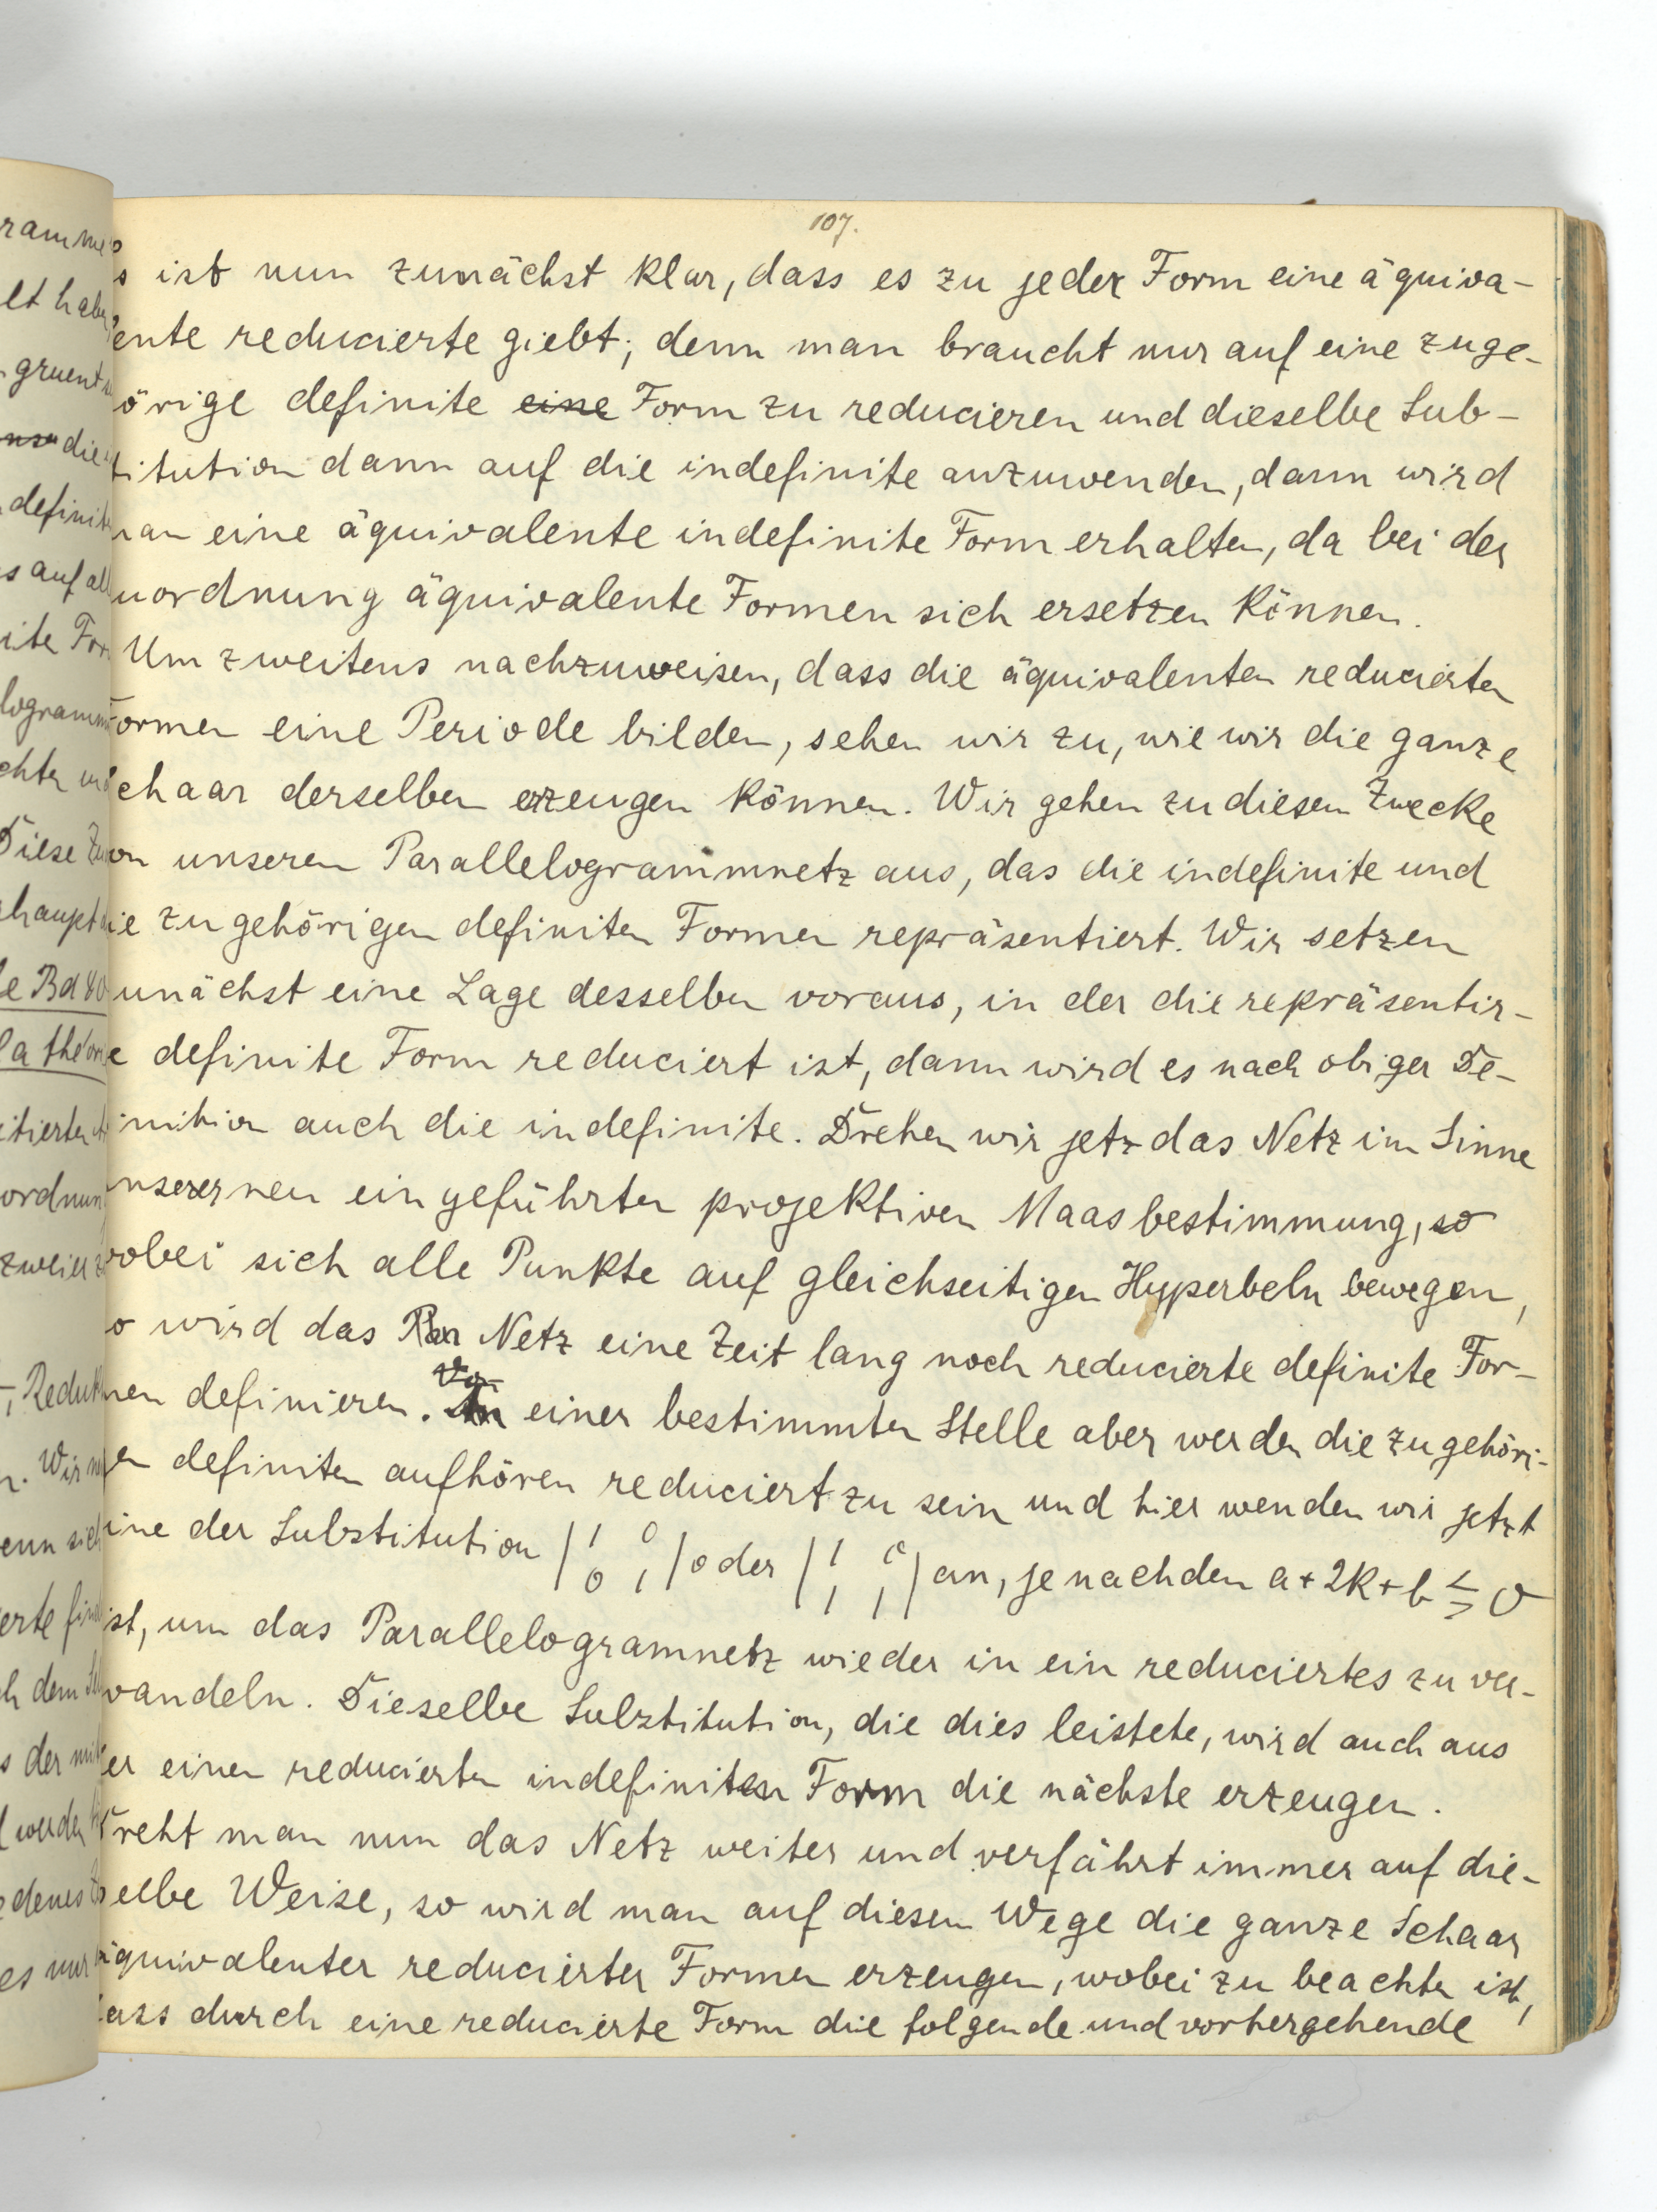 107.
s ist nun zunächst klar, dass es zu jeder Form eine äquiva-
ente reducierte giebt; denn man braucht nur auf eine zuge-
örige definite eine Form zu reducieren und dieselbe Sub-
titution dann auf die indefinite anzuwenden, dann wird
an eine äquivalente indefinite Form erhalten, da bei der
uordnung äquivalente Formen sich ersetzen können.
Um zweitens nachzuweisen, dass die äquivalenten reducierten
ormen eine Periode bilden, sehen wir zu, wie wir die ganze
chaar derselben erzeugen können. Wir gehen zu diesem Zwecke
on unserem Parallelogrammnetz aus, das die indefinite und
ie zugehörigen definiten Formen repräsentiert. Wir setzen
unächst eine Lage desselben voraus, in der die repräsentir-
e definite Form reduciert ist, dann wird es nach obiger De-
inition auch die indefinite. Drehen wir jetz das Netz im Sinne
unserer neu eingeführten projektiven Maasbestimmung, so
wobei sich alle Punkte auf gleichseitigen Hyperbeln bewegen,
o wird das Netz eine Zeit lang noch reducierte definite For-
men definieren. Von einer bestimmten Stelle aber werden die zugehöri-
en definiten aufhören reduciert zu sein und hier wenden wir jetzt
ine der Substitution | 1 0 0 1 | oder | 1 0 1 1 | an, je nachdem a + 2k + b ≶ 0
ist, um das Parallelogramnetz wieder in ein reduciertes zu ver-
wandeln. Dieselbe Substitution, die dies leistete, wird auch aus
er einen reducierten indefiniten Form die nächste erzeugen.
Dreht man nun das Netz weiter und verfährt immer auf die-
selbe Weise, so wird man auf diesem Wege die ganze Schaar
äquivalenter reducierter Formen erzeugen, wobei zu beachten ist,
ass durch eine reducierte Form die folgende und vorhergehende